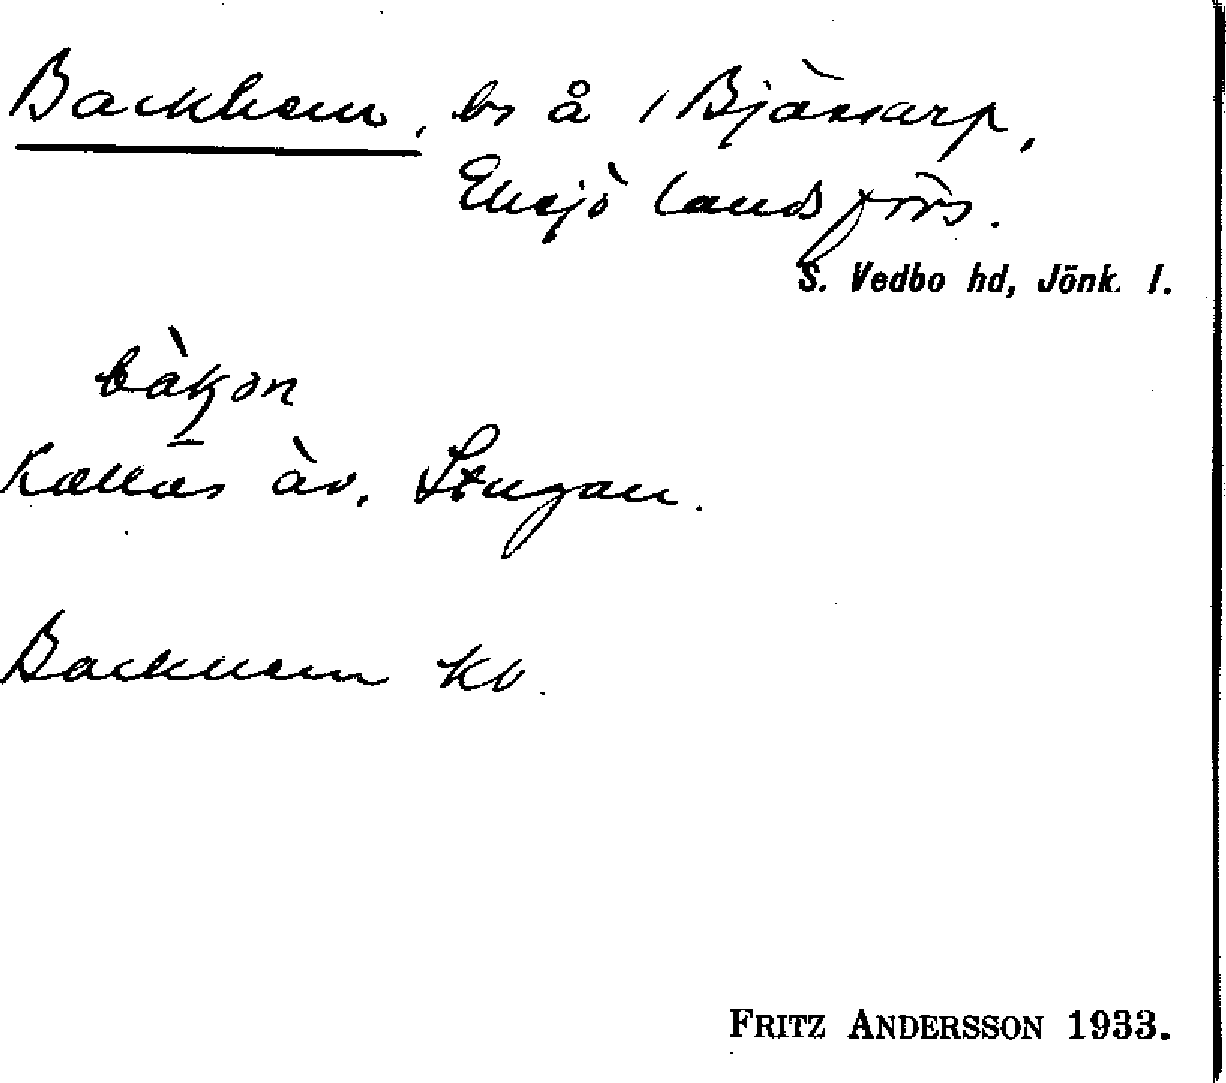 Backhem, bs å 1 Bjässarp,
Eksjö landsförs.
S. Vedbo hd, Jönk. l.
Kallas äv. Stugan.
Backhem Kb.
FRITZ ANDERSSON 1933.